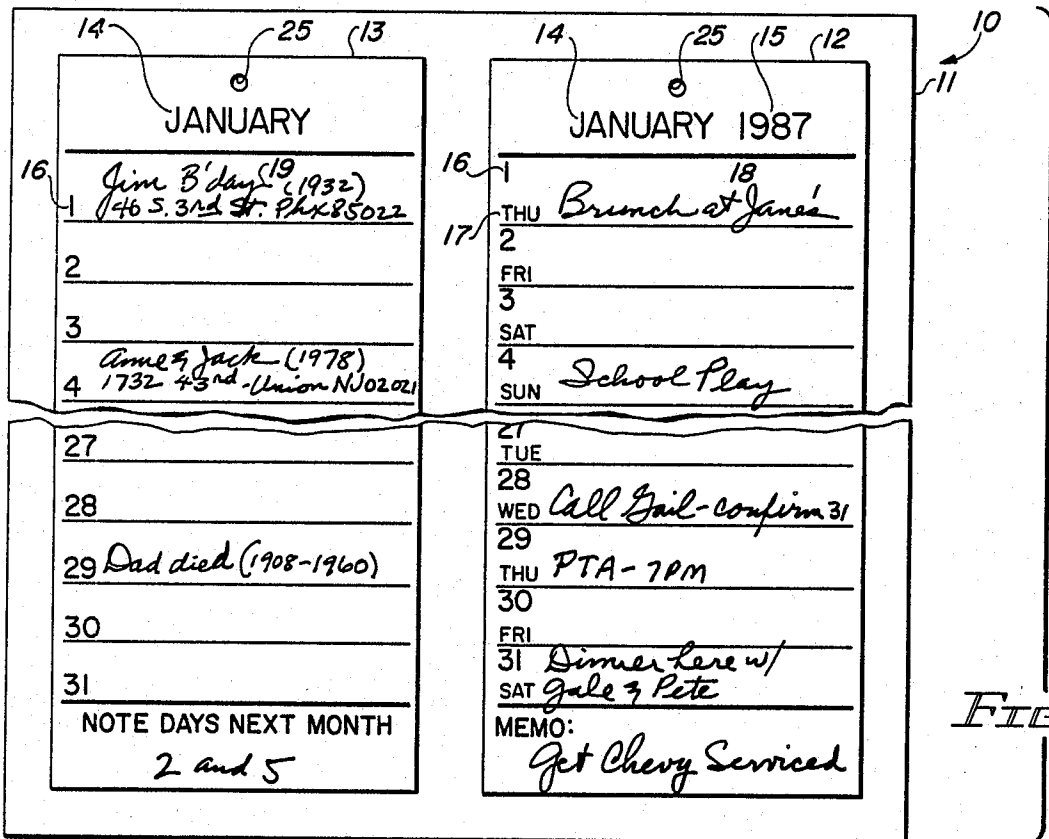 14 25 13 14 25 15 12 10
11
JANUARY
16
Jim B'day 19 (1932)
1 46 S. 3rd St. Phx 85022
2
3
Anne & Jack (1978)
4 1732 43rd - Union NJ 02021
27
28
29 Dad died (1908-1960)
30
31
NOTE DAYS NEXT MONTH
2 and 5
JANUARY 1987
16 1 18
17 THU Brunch at Jane's
2
FRI
3
SAT
4
SUN School Play
27
TUE
28
WED Call Gail - confirm 31
29
THU PTA - 7PM
30
FRI
31 Dinner here w/
SAT Gale & Pete
MEMO:
Get Chevy Serviced
FIG